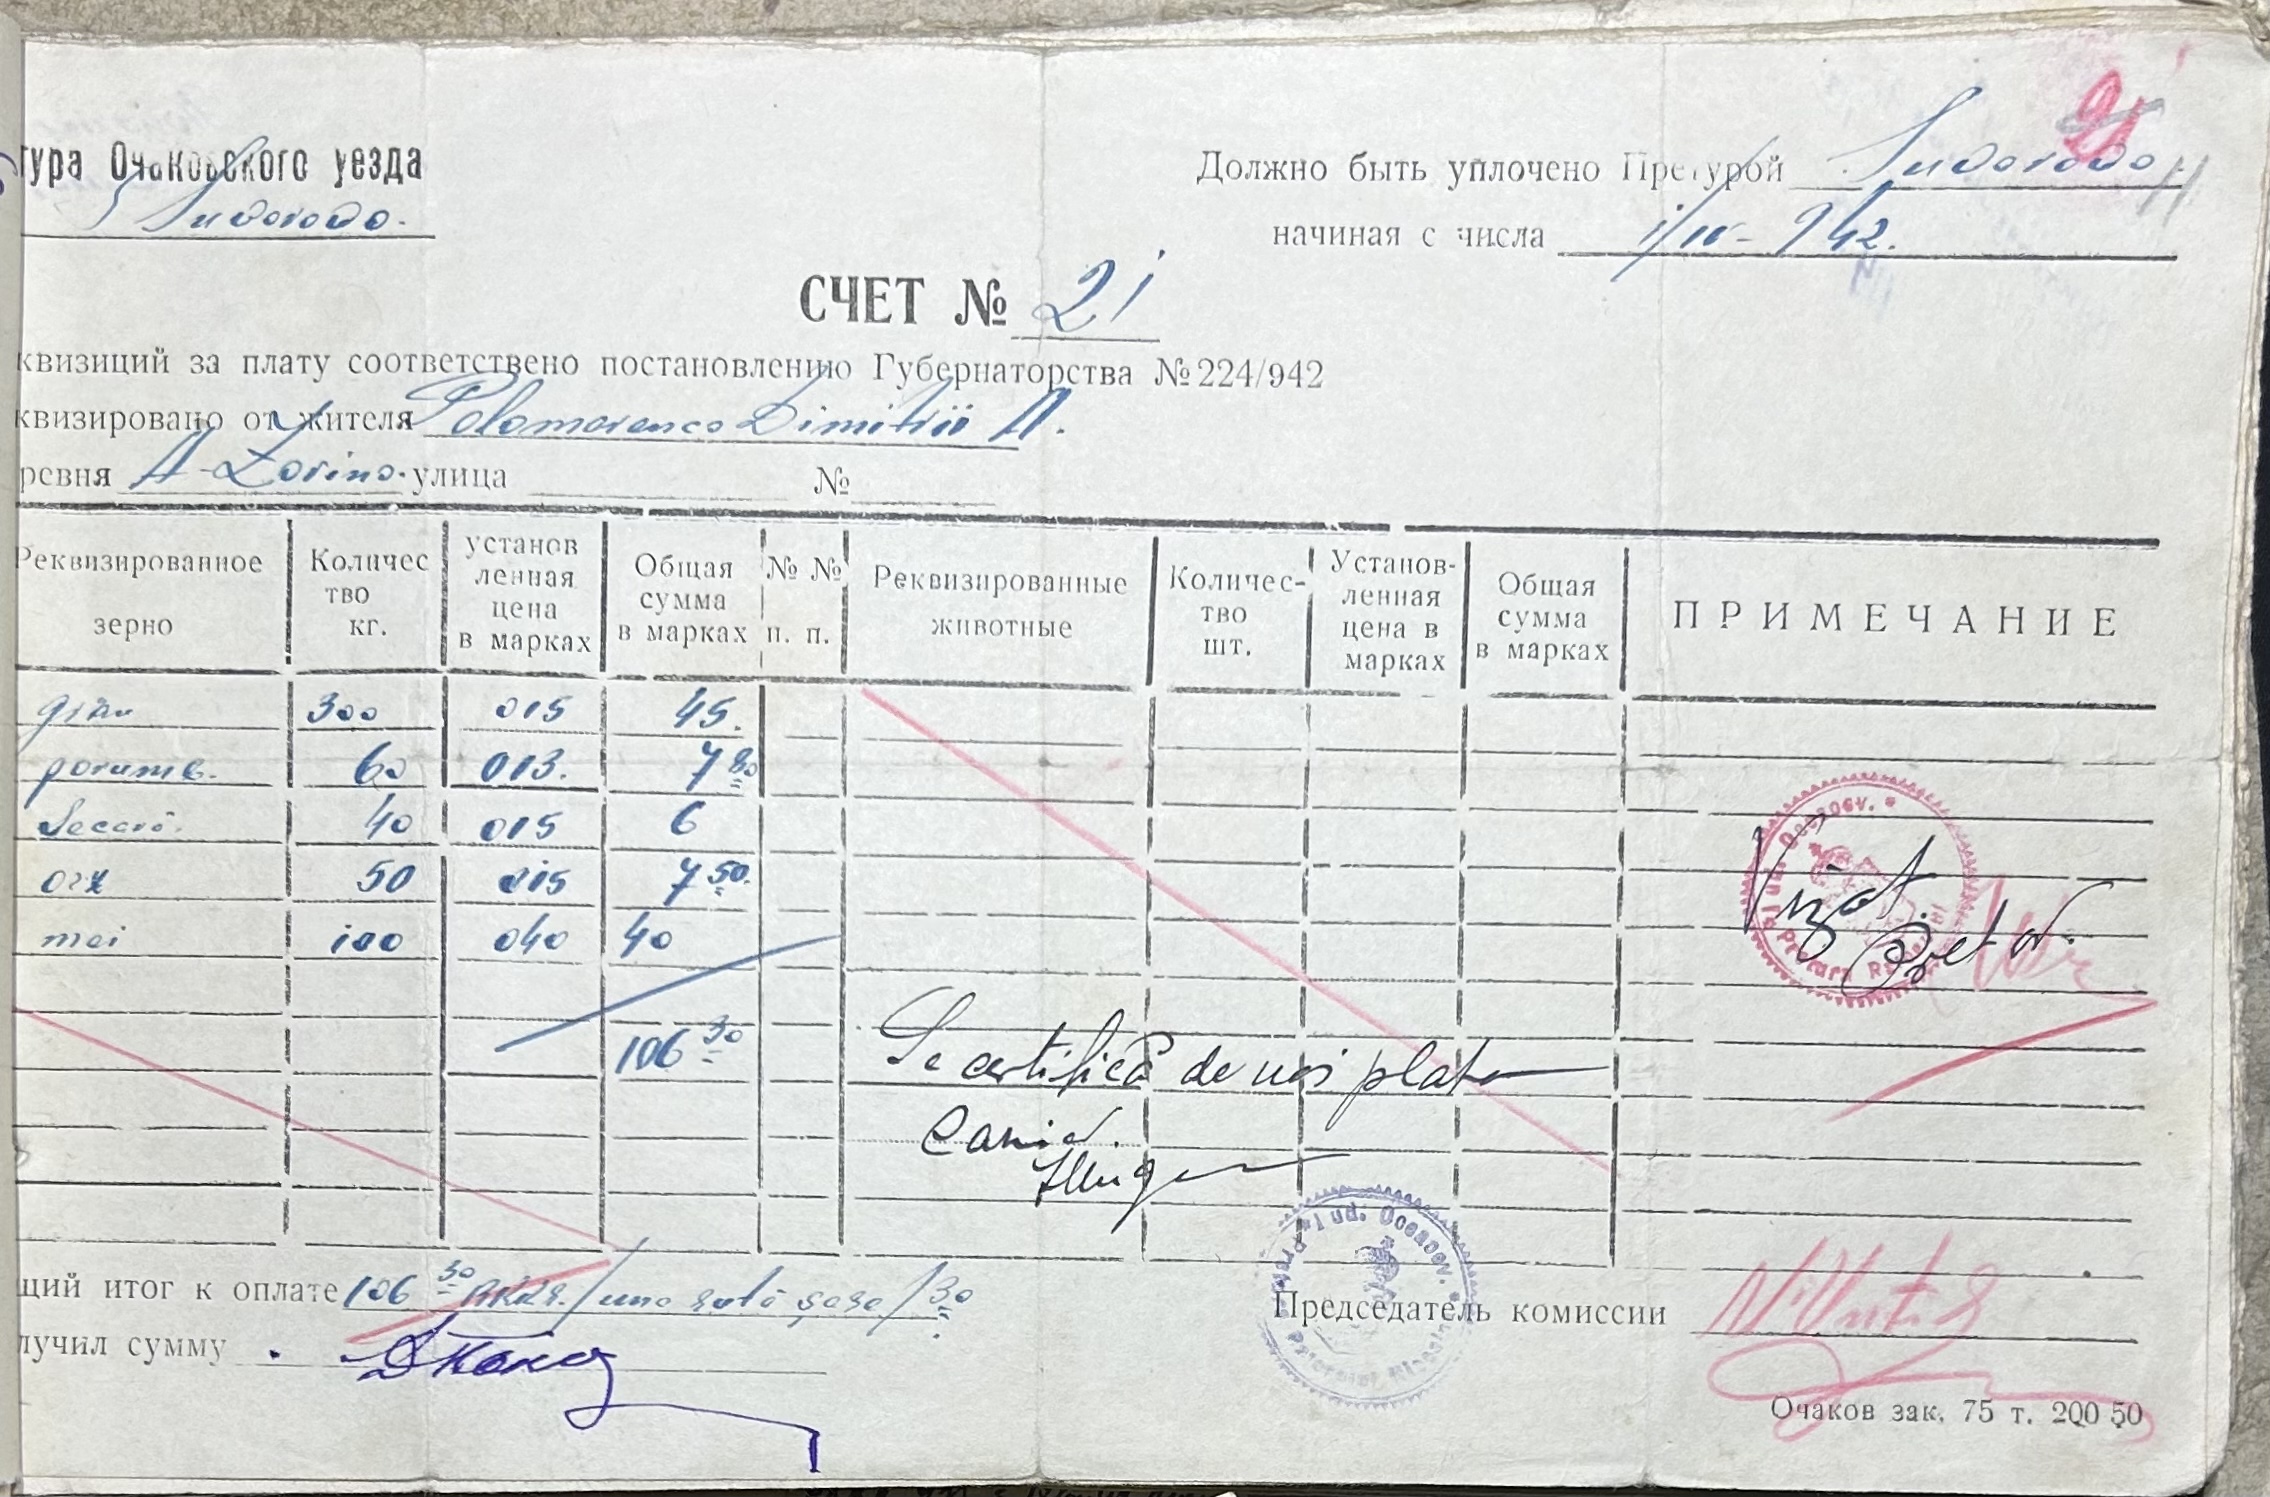 тура Очаковского уезда
Sudorodo.
Должно быть уплочено Претурой Sudorodo
начиная с числа 1/IV-942.
21
СЧЕТ № 21
квизиций за плату соответствено постановлению Губернаторства № 224/942
квизировано от жителя Polomarenco Dimitrii A.
ревня A-Zorino. улица №
Реквизированное зерно Количес тво кг. установ ленная цена в марках Общая сумма в марках № № п. п. Реквизированные животные Количес- тво шт. Установ- ленная цена в марках Общая сумма в марках ПРИМЕЧАНИЕ
grâu 300 015 45.
porumb. 60 013. 7 80
Secară. 40 015 6
orz 50 015 7 50.
mei 100 040 40
Vizat.
Pretor.
Jud. Oceacov.
106 30
Se certifică de noi plata
Casier.
щий итог к оплате 106 30 RKKS. /una sută șase/30
Jud. Oceacov.
Председатель комиссии
лучил сумму
Очаков зак. 75 т. 200 50